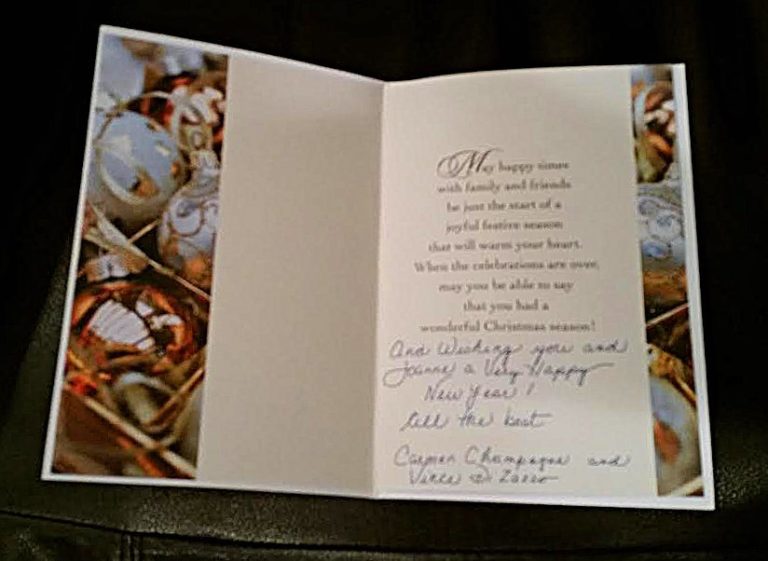 May happy times
with family and friends
be just the start of a
joyful festive season
that will warm your heart.
When the celebrations are over,
may you be able to say
that you had a
wonderful Christmas season!
And Wishing you and
Joanne a Very Happy
New Year!
All the best
Carmen Champagne and
Vince